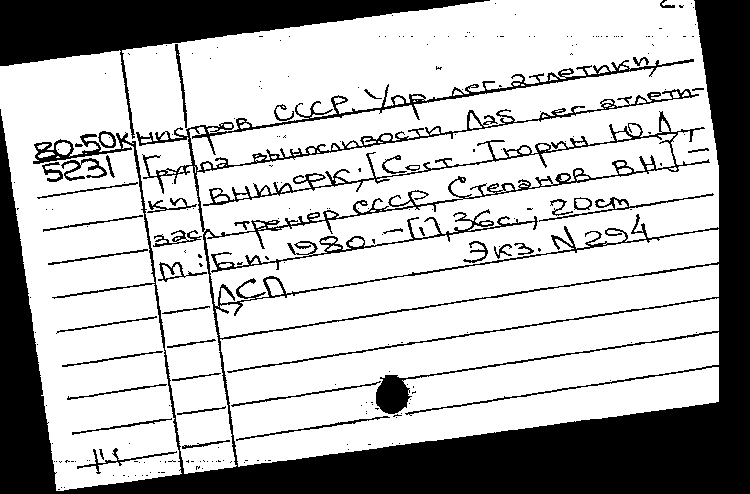 2.
80-50к нистров СССР. Упр. лег. атлетики,
5231 Группа выносливости, Лаб лег. атлети-
ки ВНИИФК; [Сост. Тюрин Ю.Д.,
засл. тренер СССР, Степанов В.Н.] –
М.: Б.и., 1980. – [1], 36с.; 20cm
ДСП. Экз. N 294
14